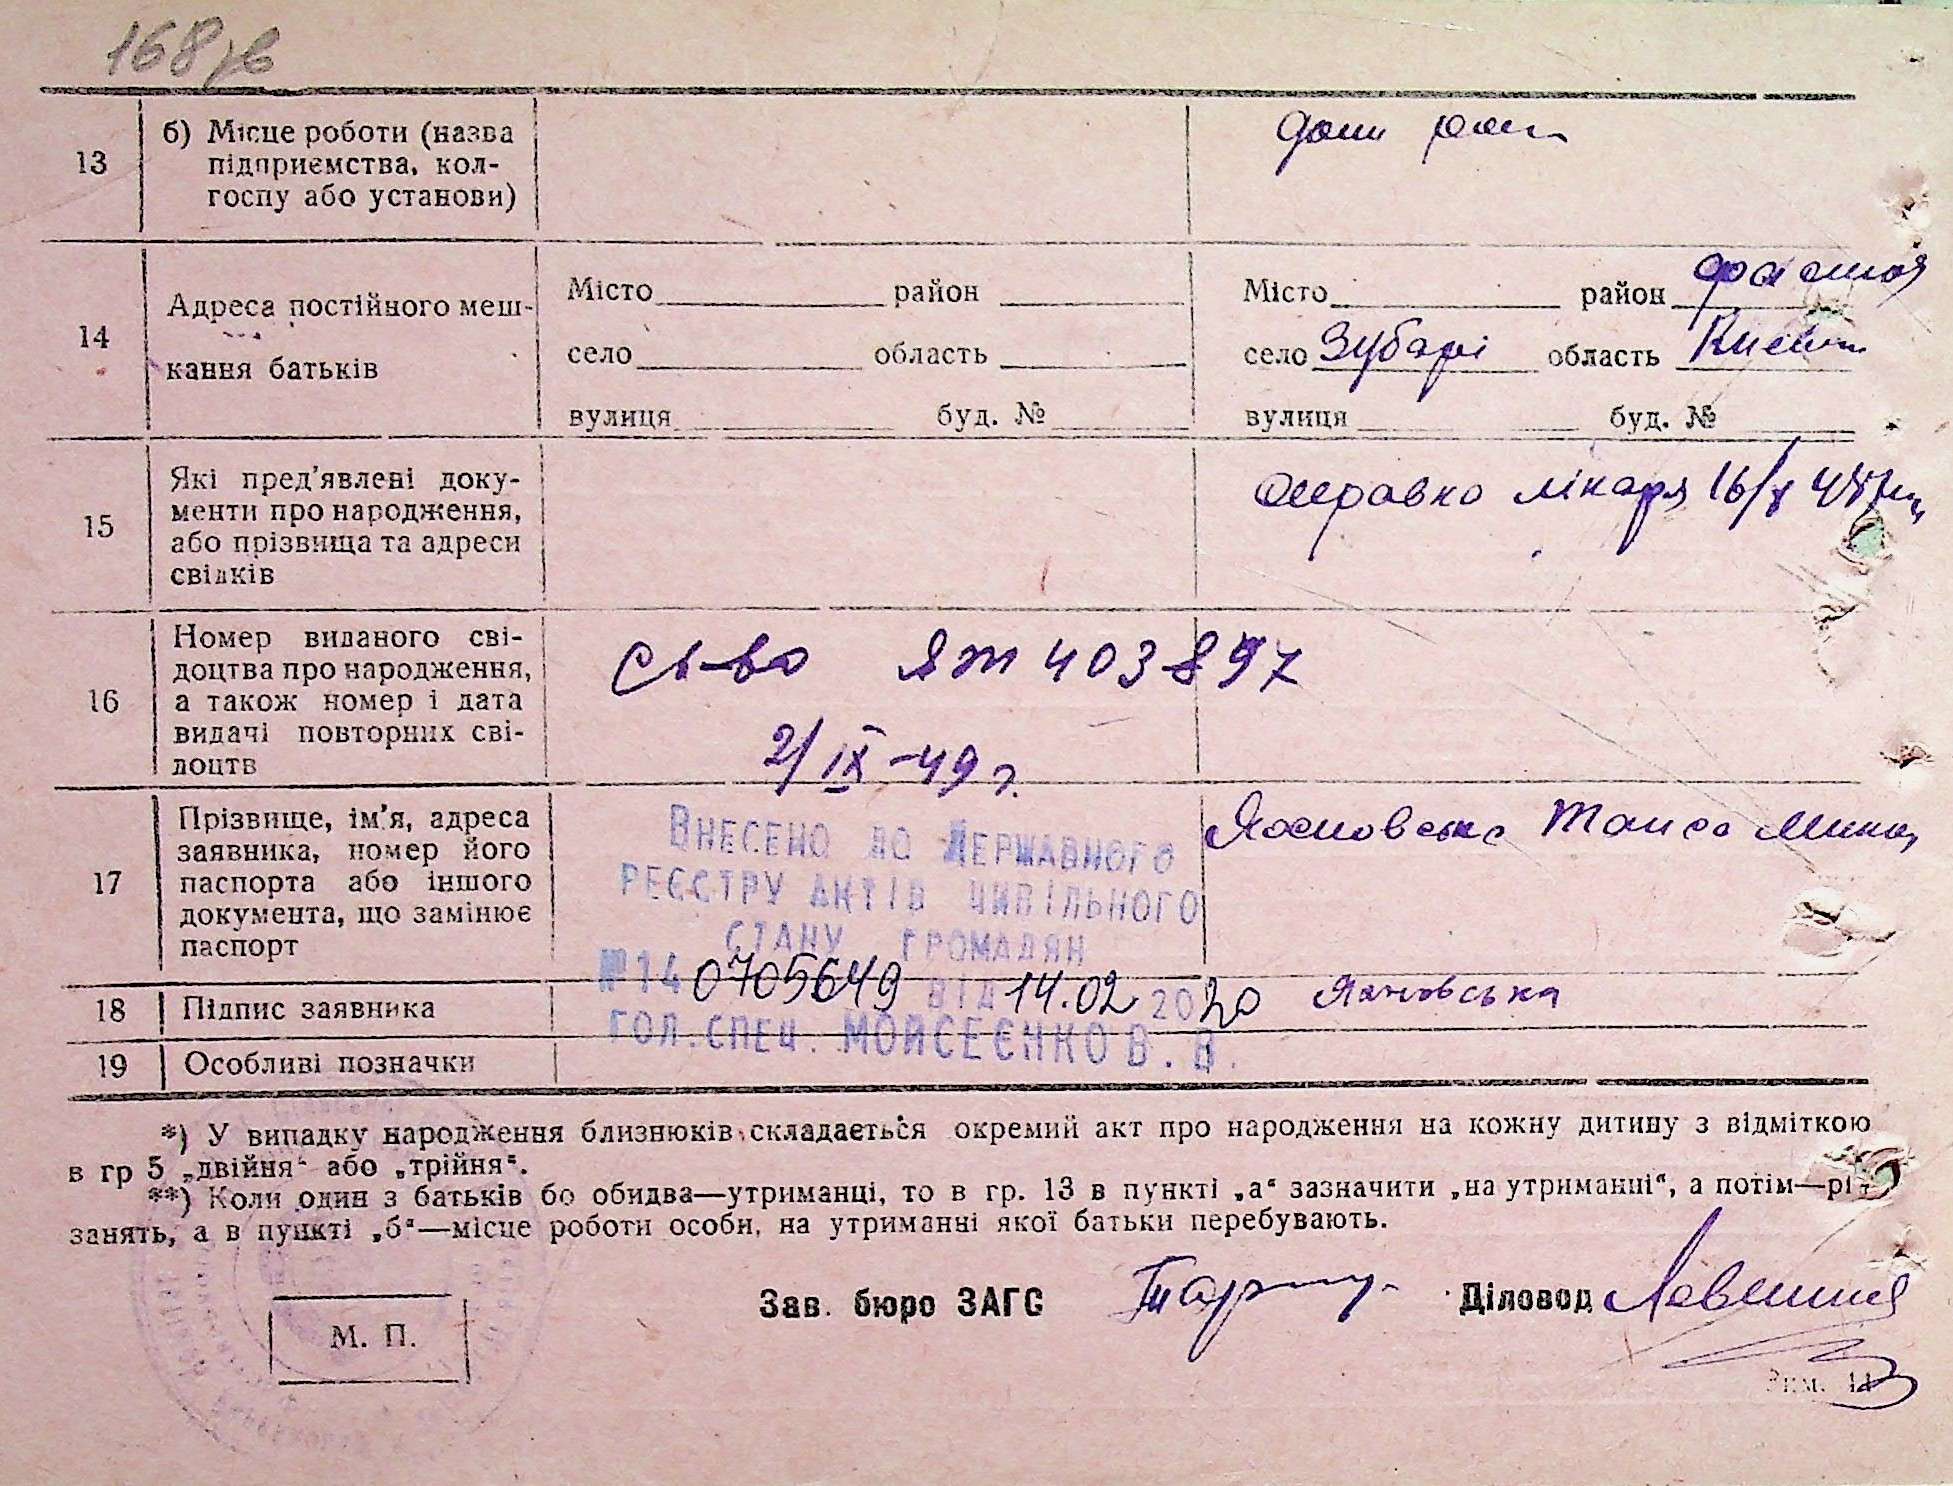 168
13
б) Місце роботи (назва
підприємства, кол-
госпу або установи)
14
Адреса постійного меш-
кання батьків
Місто район
село область
вулиця буд. №
Місто район
село Зубарі область
вулиця буд. №
15
Які пред'явлені доку-
менти про народження,
або прізвища та адреси
свідків
справка лікаря
16
Номер виданого сві-
доцтва про народження,
а також номер і дата
видачі повторних сві-
доцтв
ЯТ 403897
2/IX-49 г.
17
Прізвище, ім'я, адреса
заявника, номер його
паспорта або іншого
документа, що замінює
паспорт
ВНЕСЕНО ДО ДЕРЖАВНОГО
РЕЄСТРУ АКТІВ ЦИВІЛЬНОГО
СТАНУ ГРОМАДЯН
№ 14 0705649 ВІД 14.02 2020
ГОЛ. СПЕЦ. МОЙСЕЄНКО В. В.
18
Підпис заявника
Яхновська
19
Особливі позначки
*) У випадку народження близнюків складається окремий акт про народження на кожну дитину з відміткою
в гр 5 „двійня“ або „трійня“.
**) Коли один з батьків бо обидва—утриманці, то в гр. 13 в пункті „а“ зазначити „на утриманні“, а потім—рі
занять, а в пункті „б“—місце роботи особи, на утриманні якої батьки перебувають.
Зав. бюро ЗАГС
Діловод
М. П.